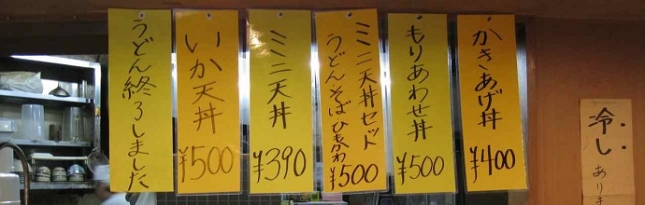 かきあげ丼
¥400
もりあわせ丼
¥500
ミニ天丼セット
うどんそばひもかわ
¥500
ミニ天丼
¥390
いか天丼
¥500
うどん終ろしました
冷し
あり